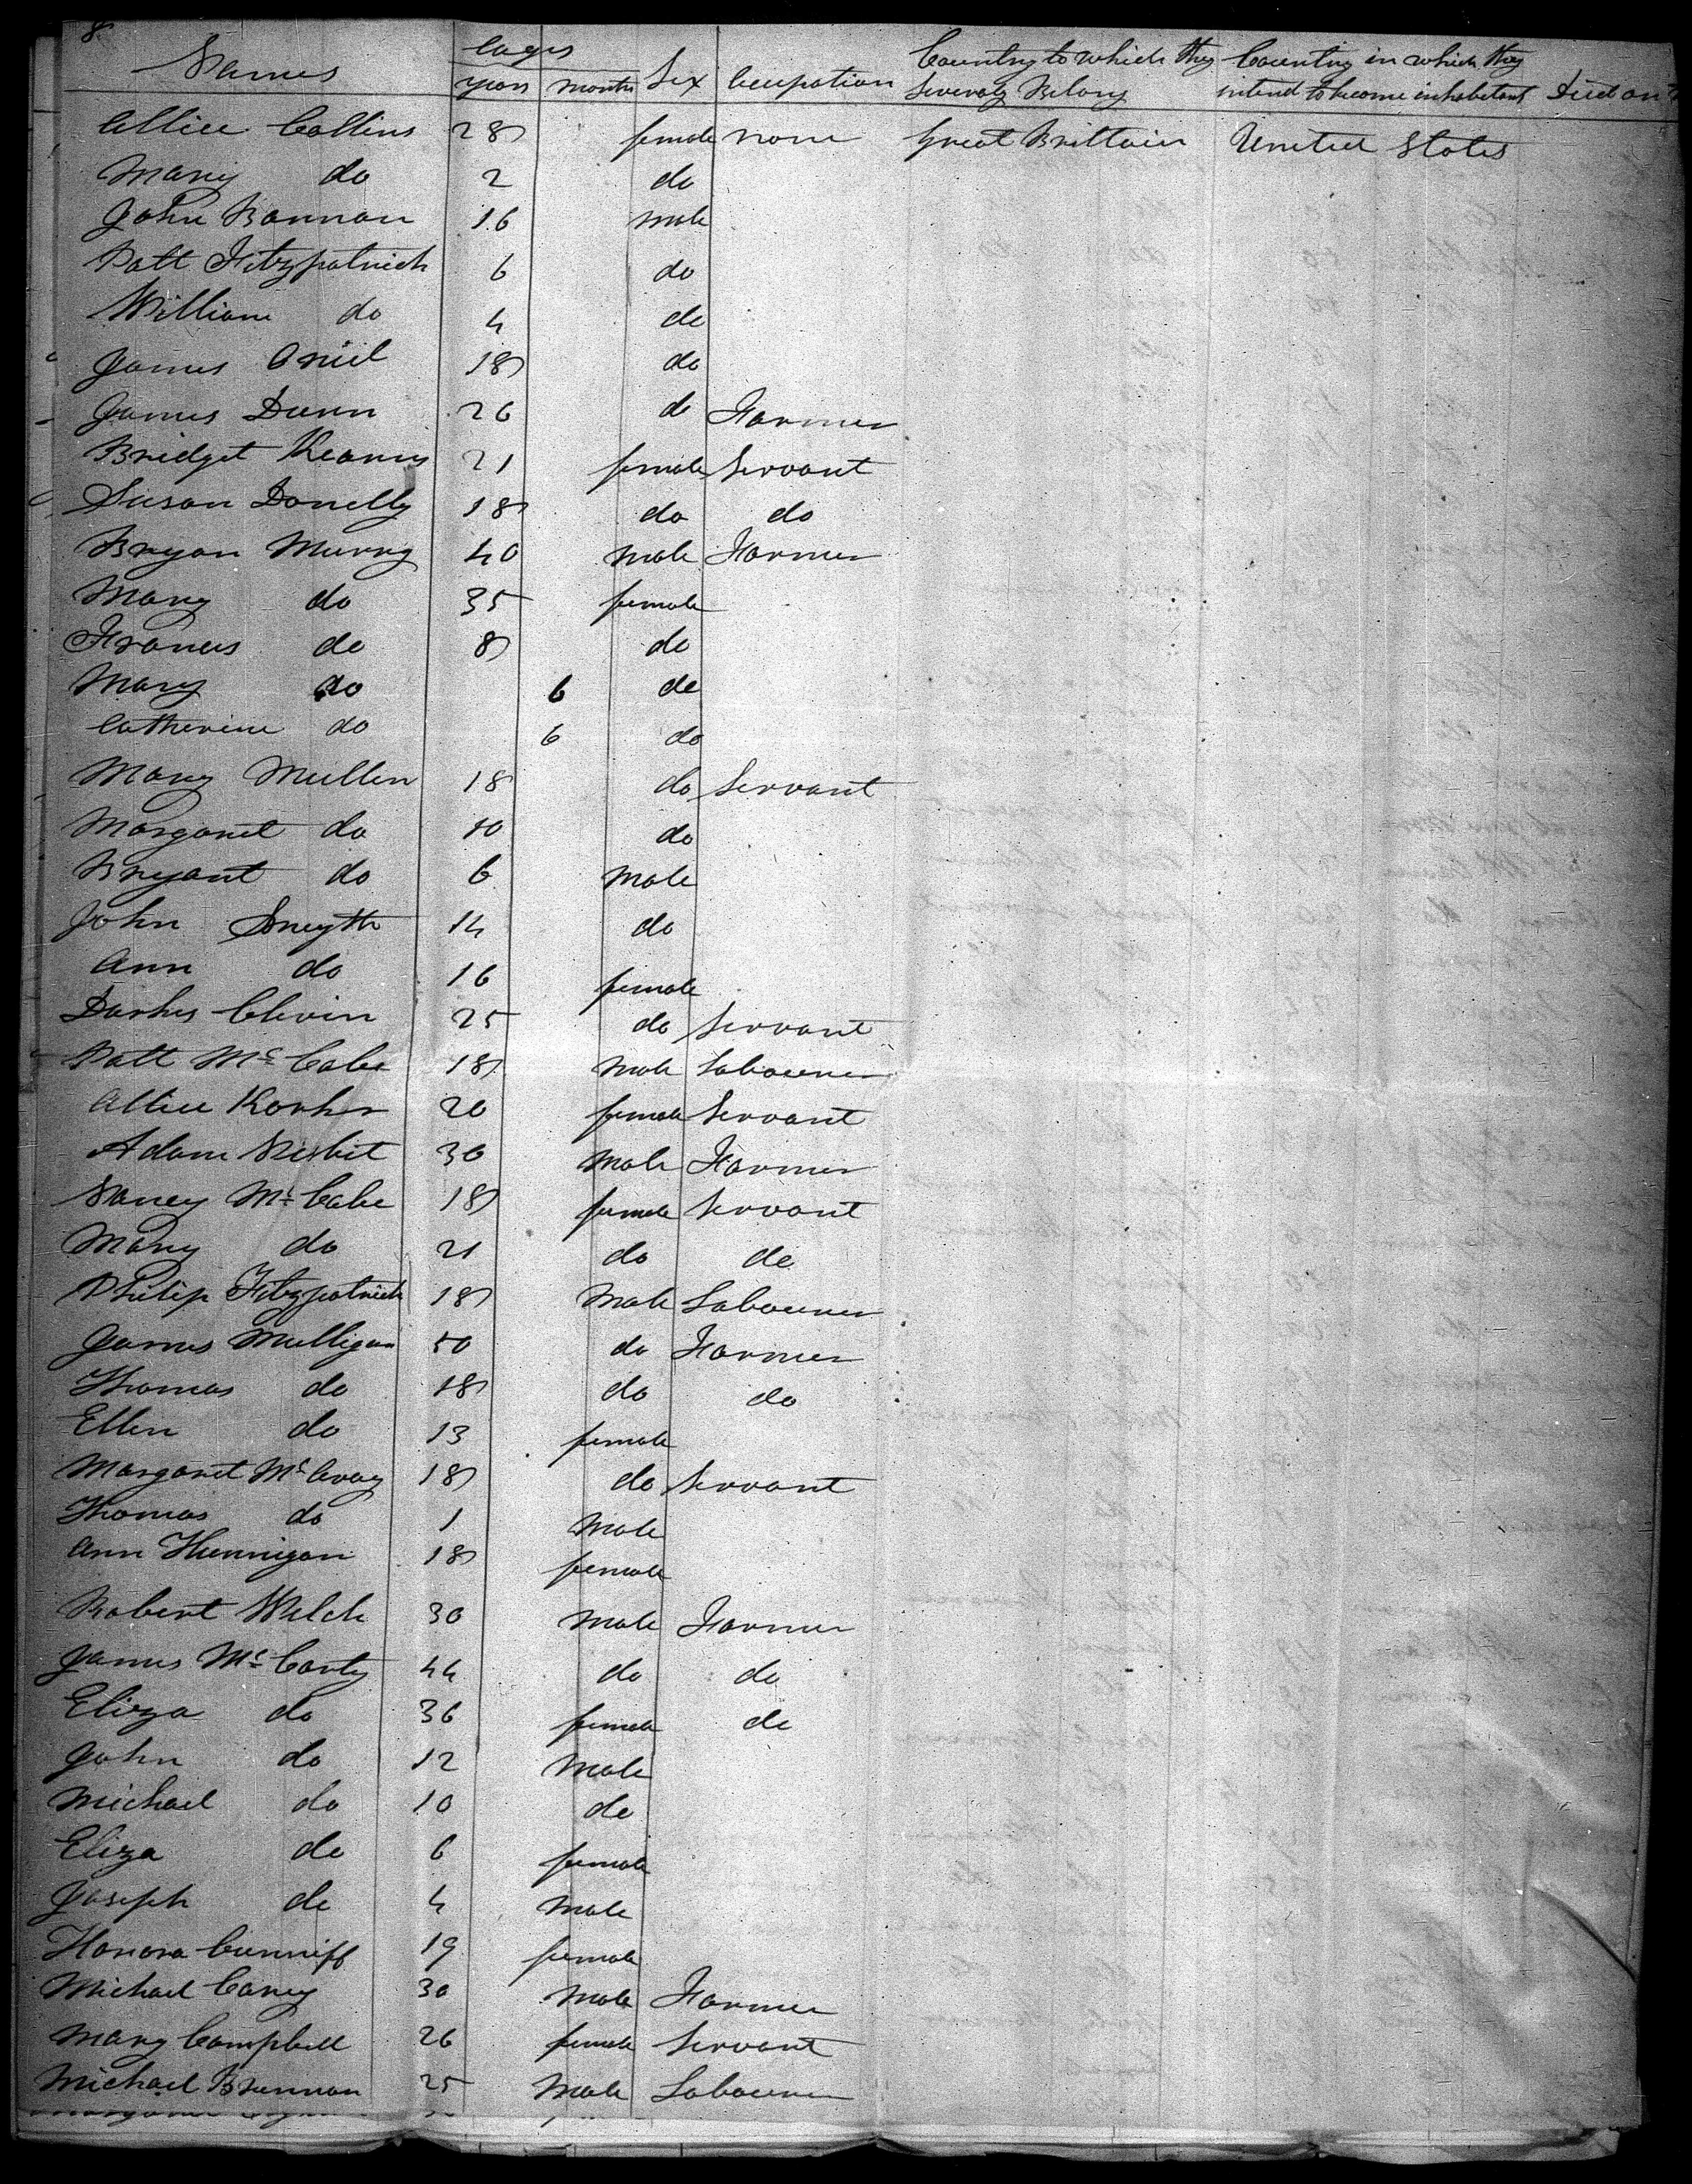 8
Names Ages Sex Occupation Country to which they Country in which they
years months Severaly Belong intend to become inhabitant Died on
Allice Collins 28 female none Great Brittain United States
Mary do 2 do
John Bannan 16 male
Patt Fitzpatrick 6 do
William do 4 do
James Oniel 18 do
James Dunn 26 do Farmer
Bridget Kearns 21 female Servant
Susan Donelly 18 do do
Bryan Murry 40 Male Farmer
Mary do 35 female
Frances do 8 do
Mary do 6 do
Catherine do 6 do
Mary Mullen 18 do Servant
Margaret do 10 do
Bryant do 6 Male
John Smyth 14 do
Ann do 16 female
Clevin 25 do Servant
Patt Mc Cabe 18 Male Labourer
Allice 20 female Servant
Adam Nisbit 30 Male Farmer
Nancy Mc Cabe 18 female Servant
Mary do 21 do do
Philip Fitzpatrick 18 Male Labourer
James Mulligan 50 do Farmer
Thomas do 18 do do
Ellen do 13 female
Margaret Mc Avoy 18 do Servant
Thomas do 1 Male
Ann Hunnigan 18 female
Robert Welch 30 Male Farmer
James Mc Carty 44 do do
Eliza do 36 female do
John do 12 Male
Michael do 10 do
Eliza do 6 female
Joseph do 4 Male
Honora Cunniff 19 female
Michael Carey 30 Male Farmer
Mary Campbell 26 female Servant
Michael Brennan 25 Male Labourer